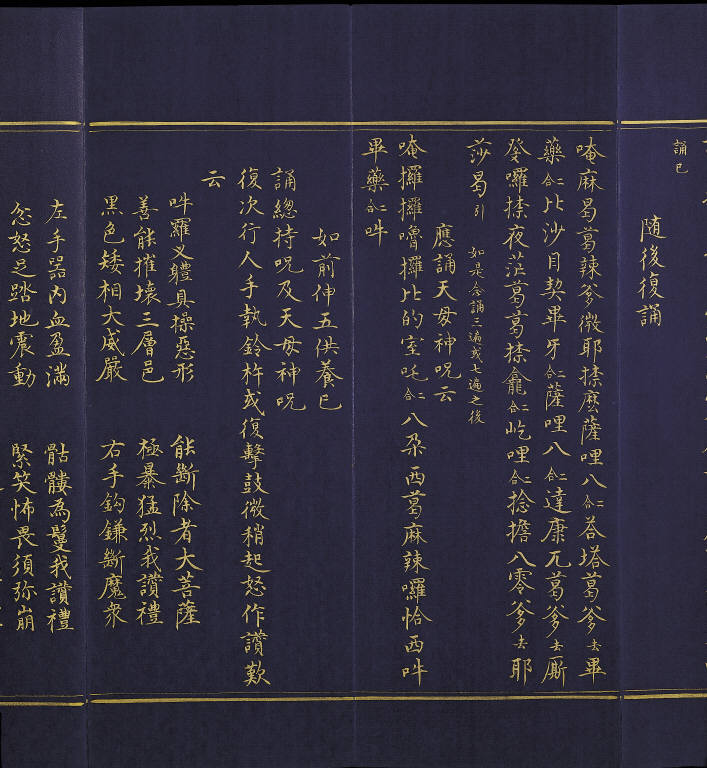 誦已
随後復誦
唵麻曷葛辣爹微耶捺麽薩哩八合二荅塔葛爹去畢
藥合二比沙目契畢牙合二薩哩八合二達康兀葛爹去厮
發囉捺夜茫葛葛捺龕合二屹哩合二捻擔八零爹去耶
莎曷引 如是念誦三遍或七遍之後
應誦天母神呪云
唵攞攞嚕攞比的室吒合二八朶西葛麻辣囉恰西吽
畢藥合二吽
如前伸五供養已
誦總持呪及天母神呪
復次行人手執鈴杵或復擊鼓微稍起怒作讃歎
云
吽羅叉軆具操惡形 能斷除者大菩薩
善能摧壞三層邑 極暴猛烈我讃禮
黑色矮相大威嚴 右手鈎鎌斷魔衆
左手器内血盈滿 骷髏為鬘我讃禮
忿怒足踏地震動 緊笑怖畏須弥崩